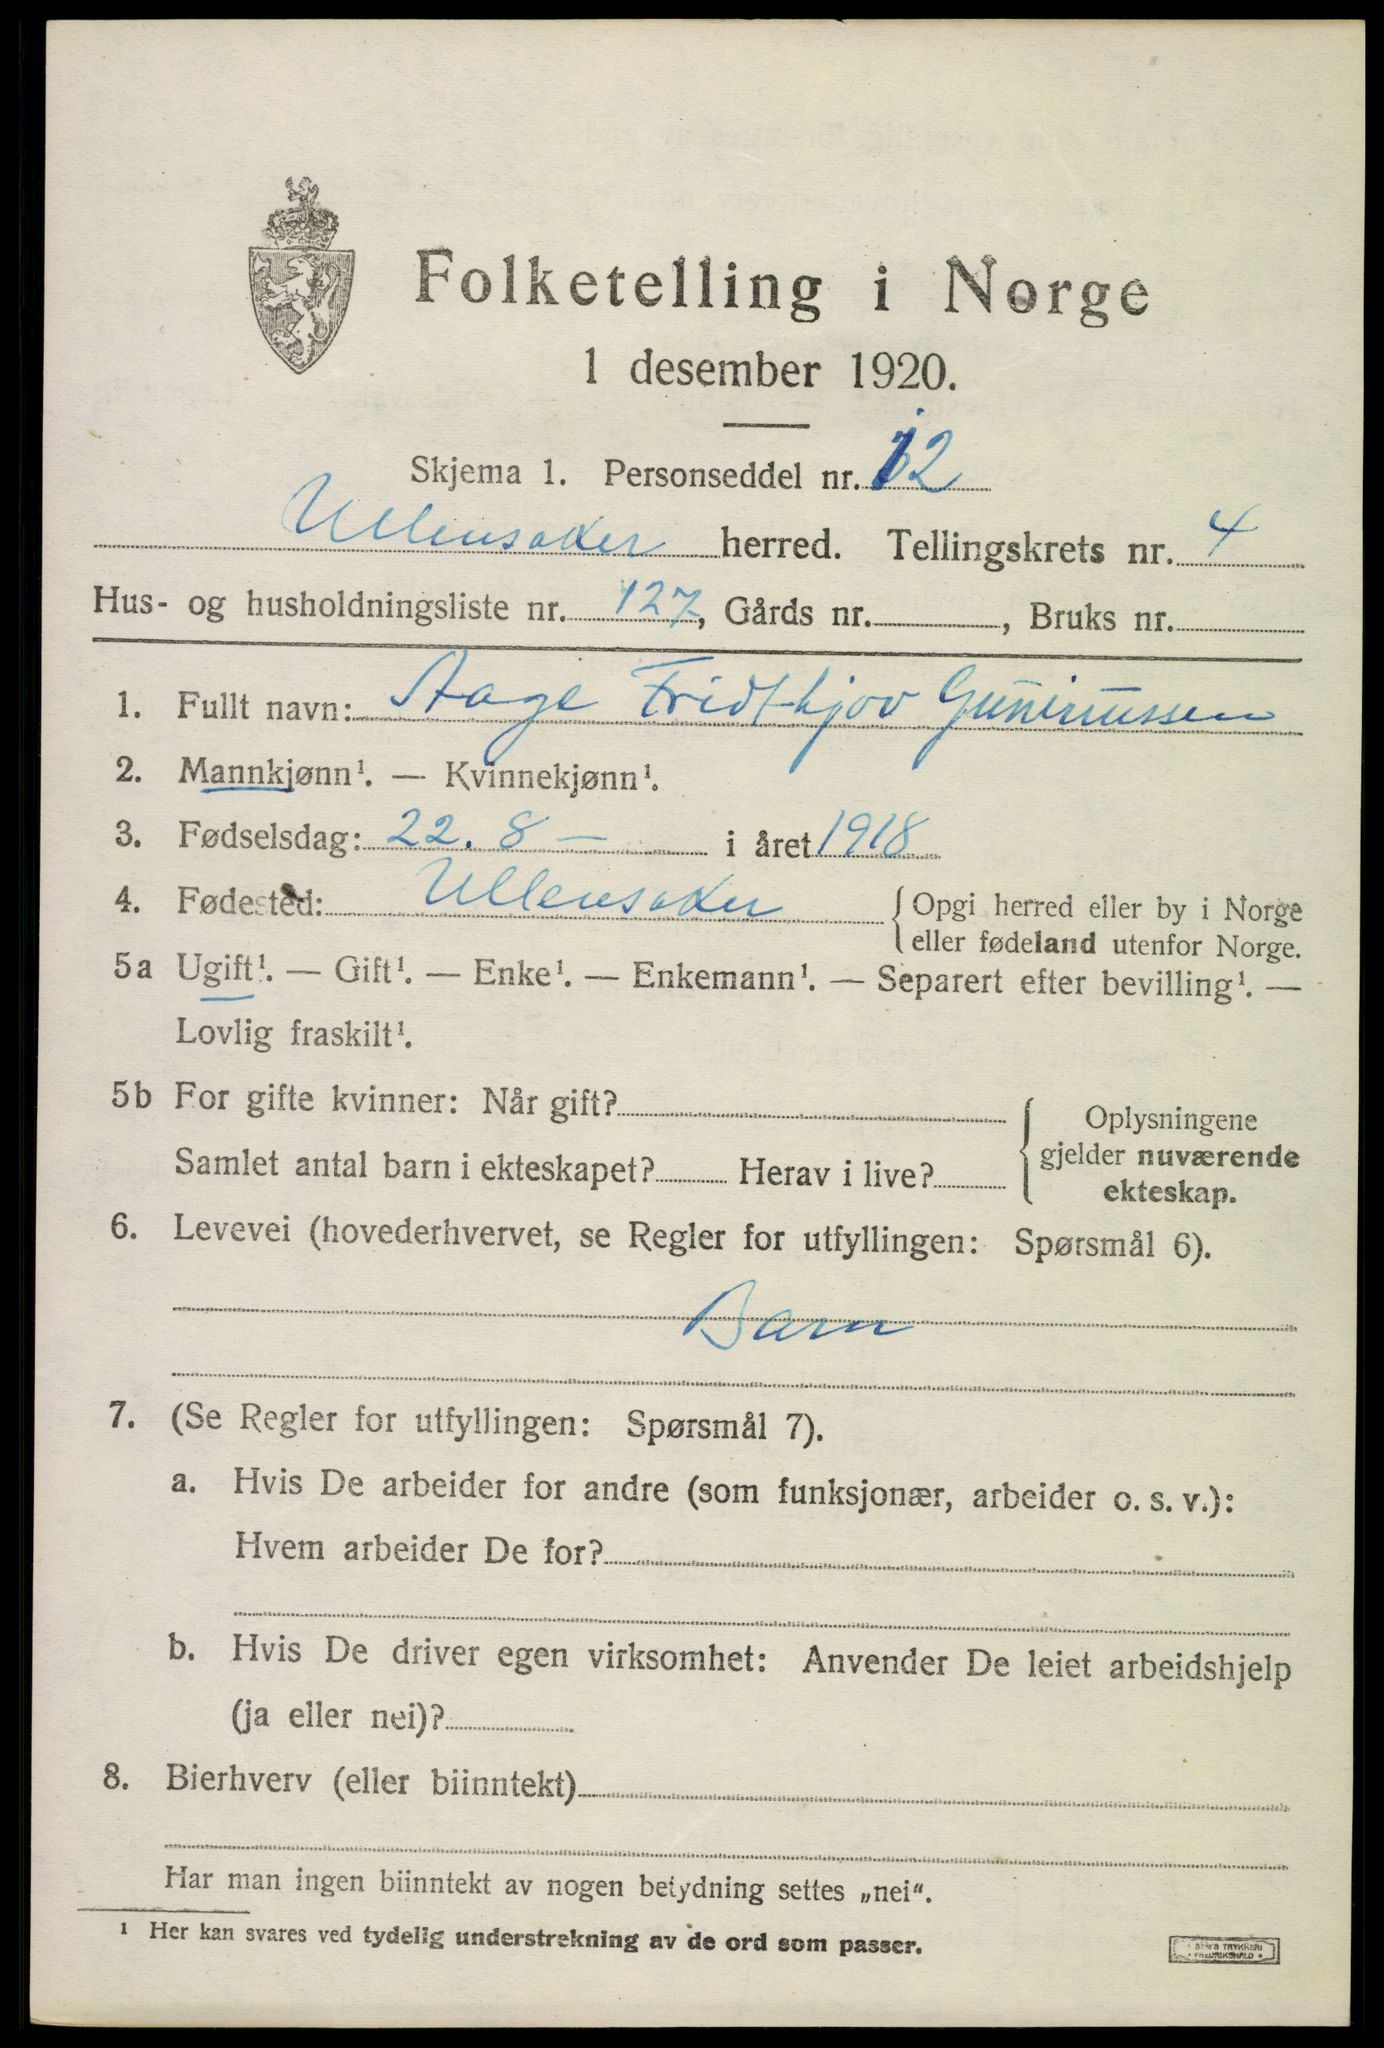 Folketelling i Norge
1 desember 1920.
Skjema 1. Personseddel nr. 12
Ullensaker herred. Tellingskrets nr. 4
Hus- og husholdningsliste nr. 127, Gårds nr. , Bruks nr.
1. Fullt navn: Aage Fridthjov
2. Mannkjønn¹. — Kvinnekjønn¹.
3. Fødselsdag: 22. 8 — i året 1918
4. Fødested: Ullensaker { Opgi herred eller by i Norge
eller fødeland utenfor Norge.
5a Ugift¹. — Gift¹. — Enke¹. — Enkemann¹. — Separert efter bevilling¹. —
Lovlig fraskilt¹.
5b For gifte kvinner: Når gift?
Samlet antal barn i ekteskapet? Herav i live?
{ Oplysningene
gjelder nuværende
ekteskap.
6. Levevei (hovederhvervet, se Regler for utfyllingen: Spørsmål 6).
Barn
7. (Se Regler for utfyllingen: Spørsmål 7).
a. Hvis De arbeider for andre (som funksjonær, arbeider o. s. v.):
Hvem arbeider De for?
b. Hvis De driver egen virksomhet: Anvender De leiet arbeidshjelp
(ja eller nei)?
8. Bierhverv (eller biinntekt)
Har man ingen biinntekt av nogen betydning settes „nei“.
¹ Her kan svares ved tydelig understrekning av de ord som passer.
TRYKKERI
FREDRIKSHALD